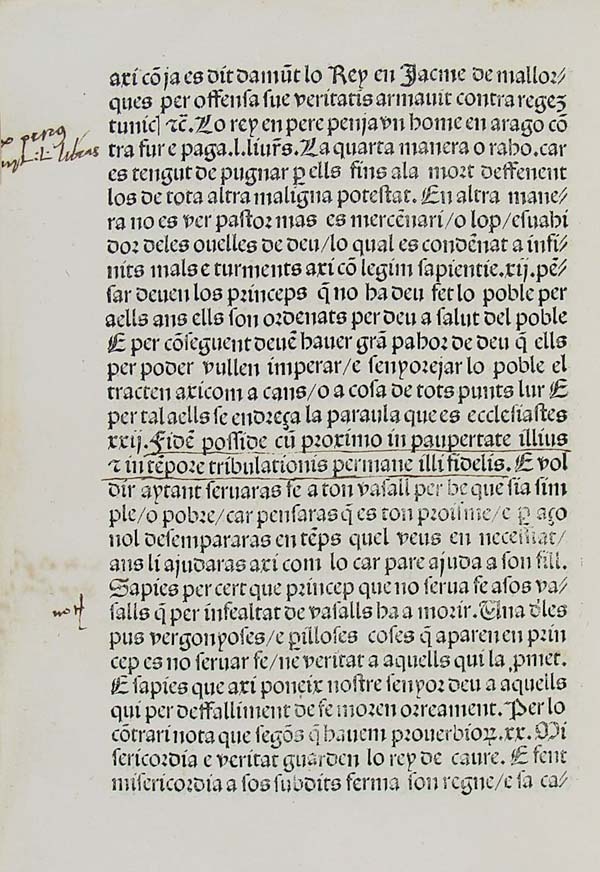 axi cõ ja es dit damũt lo Rey en Jacme de mallor⸗
ques per offensa sue veritatis armauit contra regeʒ
tunicʒ ⁊c̃. Lo rey en pere penja vn home en arago cõ
tra fur e paga .l. liur̃s. La quarta manera o raho. car
es tengut de pugnar ꝑ ells fins ala mort deffenent
los de tota altra maligna potestat. En altra mane⸗
ra no es ver pastor mas es mercẽnari/o lop/esuahi
dor deles ouelles de deu/lo qual es condẽnat a infi⸗
nits mals e turments axi cõ legim sapientie .xij. pẽ⸗
sar deuen los princeps q̃ no ha deu fet lo poble per
aells ans ells son ordenats per deu a salut del poble
E per cõseguent deuẽ hauer grã pahor de deu q̃ ells
per poder vullen imperar/e senyorejar lo poble el
tracten axi com a cans/o a cosa de tots punts lur E
per tal aells se endreça la paraula que es ecclesiastes
xxij. Fidẽ posside cũ proximo in paupertate illius
⁊ in tẽpore tribulationis permane illi fidelis. E vol
dir aytant seruaras fe a ton vasall per be que sia sim
ple/o pobre/car pensaras q̃ es ton proisme/e ꝑ aço
nol desempararas en tẽps quel veus en necessitat/
ans li ajudaras axi com lo car pare ajuda a son fill.
Sapies per cert que princep que no serua fe asos va⸗
salls q̃ per infealtat de vasalls ha a morir. Una d̃les
pus vergonyoses/e ꝑilloses coses q̃ aparen en prin
cep es no seruar fe/ne veritat a aquells qui la ꝓmet.
E sapies que axi poneix nostre senyor deu a aquells
qui per deffalliment de fe moren orreament. Per lo
cõtrari nota que segõs q̃ hauem prouerbioꝝ .xx. Mi
sericordia e veritat guarden lo rey de caure. E fent
misericordia a sos subdits ferma son regne/e sa ca⸗